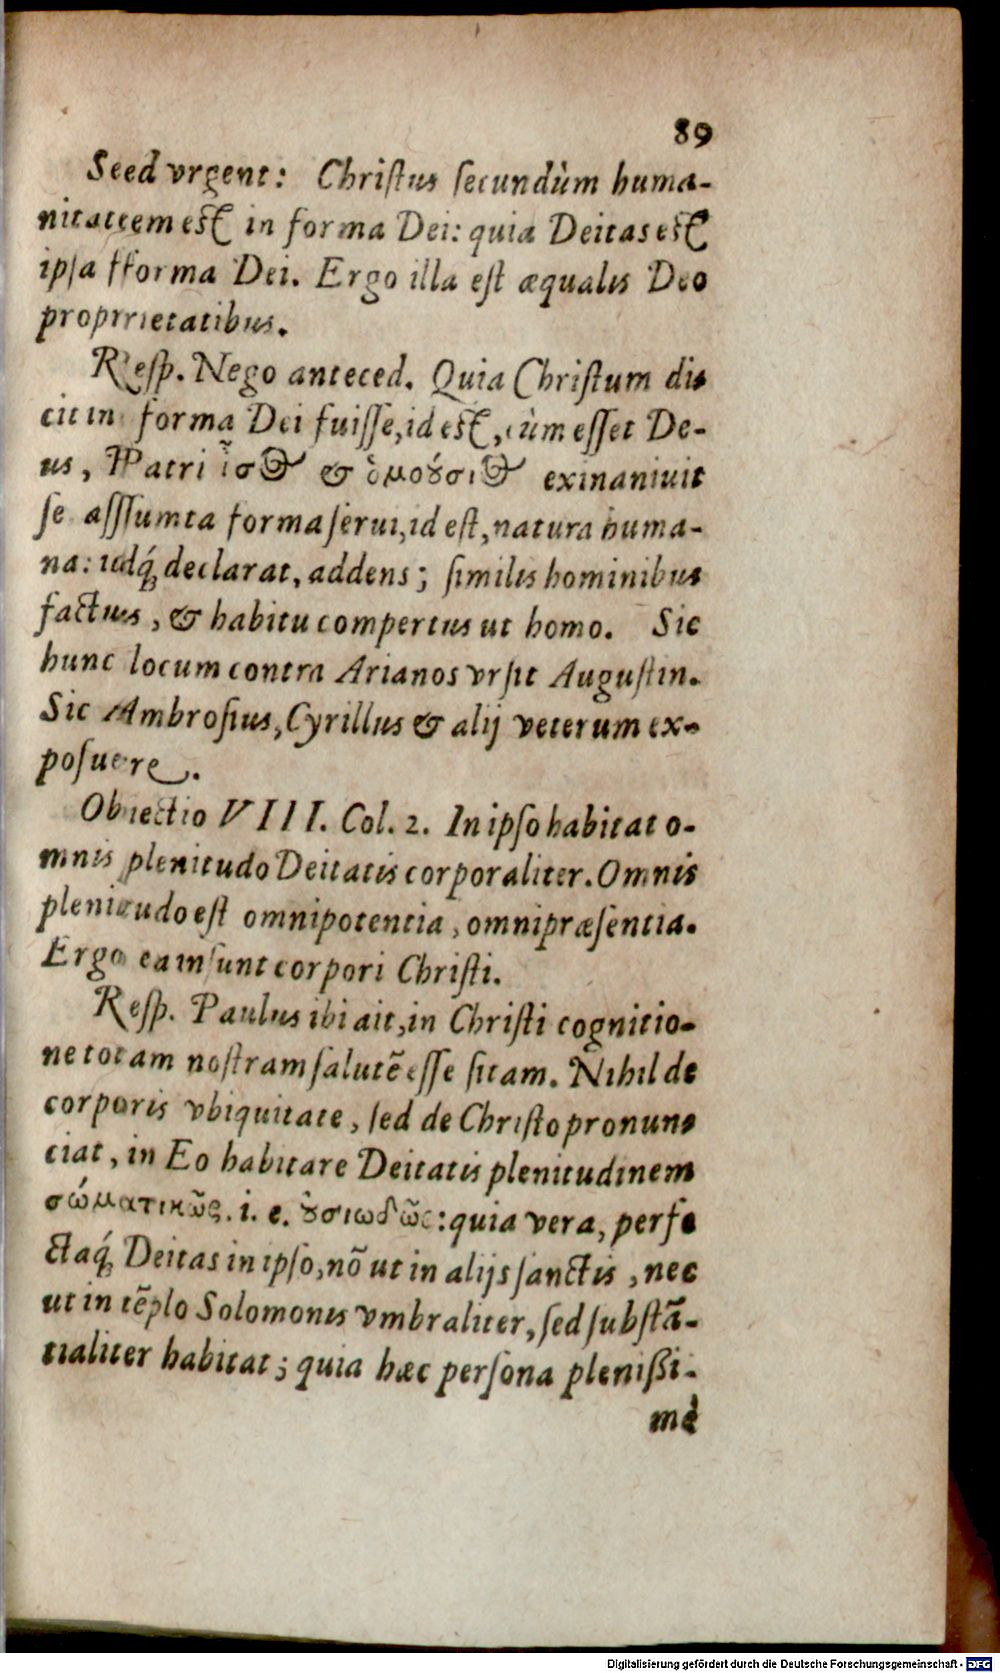 89
Sed vrgent: Christus secundùm huma-
nitatem est in forma Dei: quia Deitas est
ipsa forma Dei. Ergo illa est æqualis Deo
proprietatibus.
Resp. Nego anteced. Quia Christum di-
cit in forma Dei fuisse, id est, cùm esset De-
us, Patri ἴσος & ὁμοούσιος exinanivit
se assumta forma serui, id est, natura huma-
na: idq́; declarat, addens; similis hominibus
factus, & habitu compertus ut homo. Sic
hunc locum contra Arianos vrsit Augustin.
Sic Ambrosius, Cyrillus & alij veterum ex-
posuere.
Obiectio VIII. Col. 2. In ipso habitat o-
mnis plenitudo Deitatis corporaliter. Omnis
plenitudo est omnipotentia, omnipræsentia.
Ergo ea insunt corpori Christi.
Resp. Paulus ibi ait, in Christi cognitio-
ne totam nostram salutē esse sitam. Nihil de
corporis vbiquitate, sed de Christo pronun-
ciat, in Eo habitare Deitatis plenitudinem
σώματικῶς. i. e. ȣσιωδῶς: quia vera, perfe
ctaq́; Deitas in ipso, nō ut in alijs sanctis, nec
ut in tēplo Solomonis vmbraliter, sed substā-
tialiter habitat; quia hæc persona plenißi-
mè
Digitalisierung gefördert durch die Deutsche Forschungsgemeinschaft - DFG